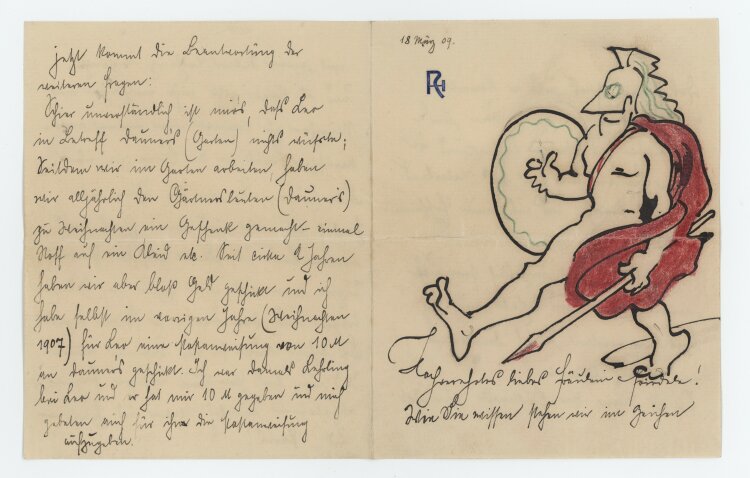 jetzt kommt die Beantwortung der
weiteren Fragen:
Schier unverständlich ist mir's, dass Leo
in Betreff Dauner's (Garten) nichts wüsste;
Seitdem wir im Garten arbeiten, haben
wir alljährlich den Gärtnersleuten (Dauner's)
zu Weihnachten ein Geschenk gemacht – einmal
Stoff auf ein Kleid etc. Seit cirka 2 Jahren
haben wir aber bloß Geld geschickt und ich
habe selbst im vorigen Jahre (Weihnachten
1907) für Leo eine Postanweisung von 10 M
an Dauner's geschickt. Ich war damals Lehrling
bei Leo und er hat mir 10 M gegeben und mich
gebeten auch für ihn die Postanweisung
aufzugeben.
18 März 09.
Hochverehrtes liebes Fräulein !
Wie Sie wissen stehen wir im Zeichen